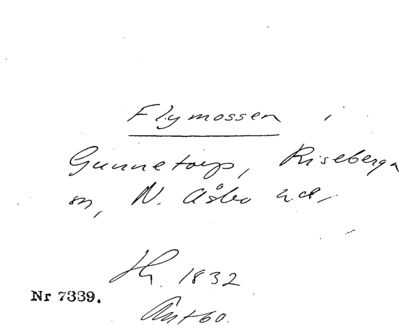 Flymossen i
Gunnetorp, Riseberga
sn, N. Åsbo hd,
1832
Nr 7339.